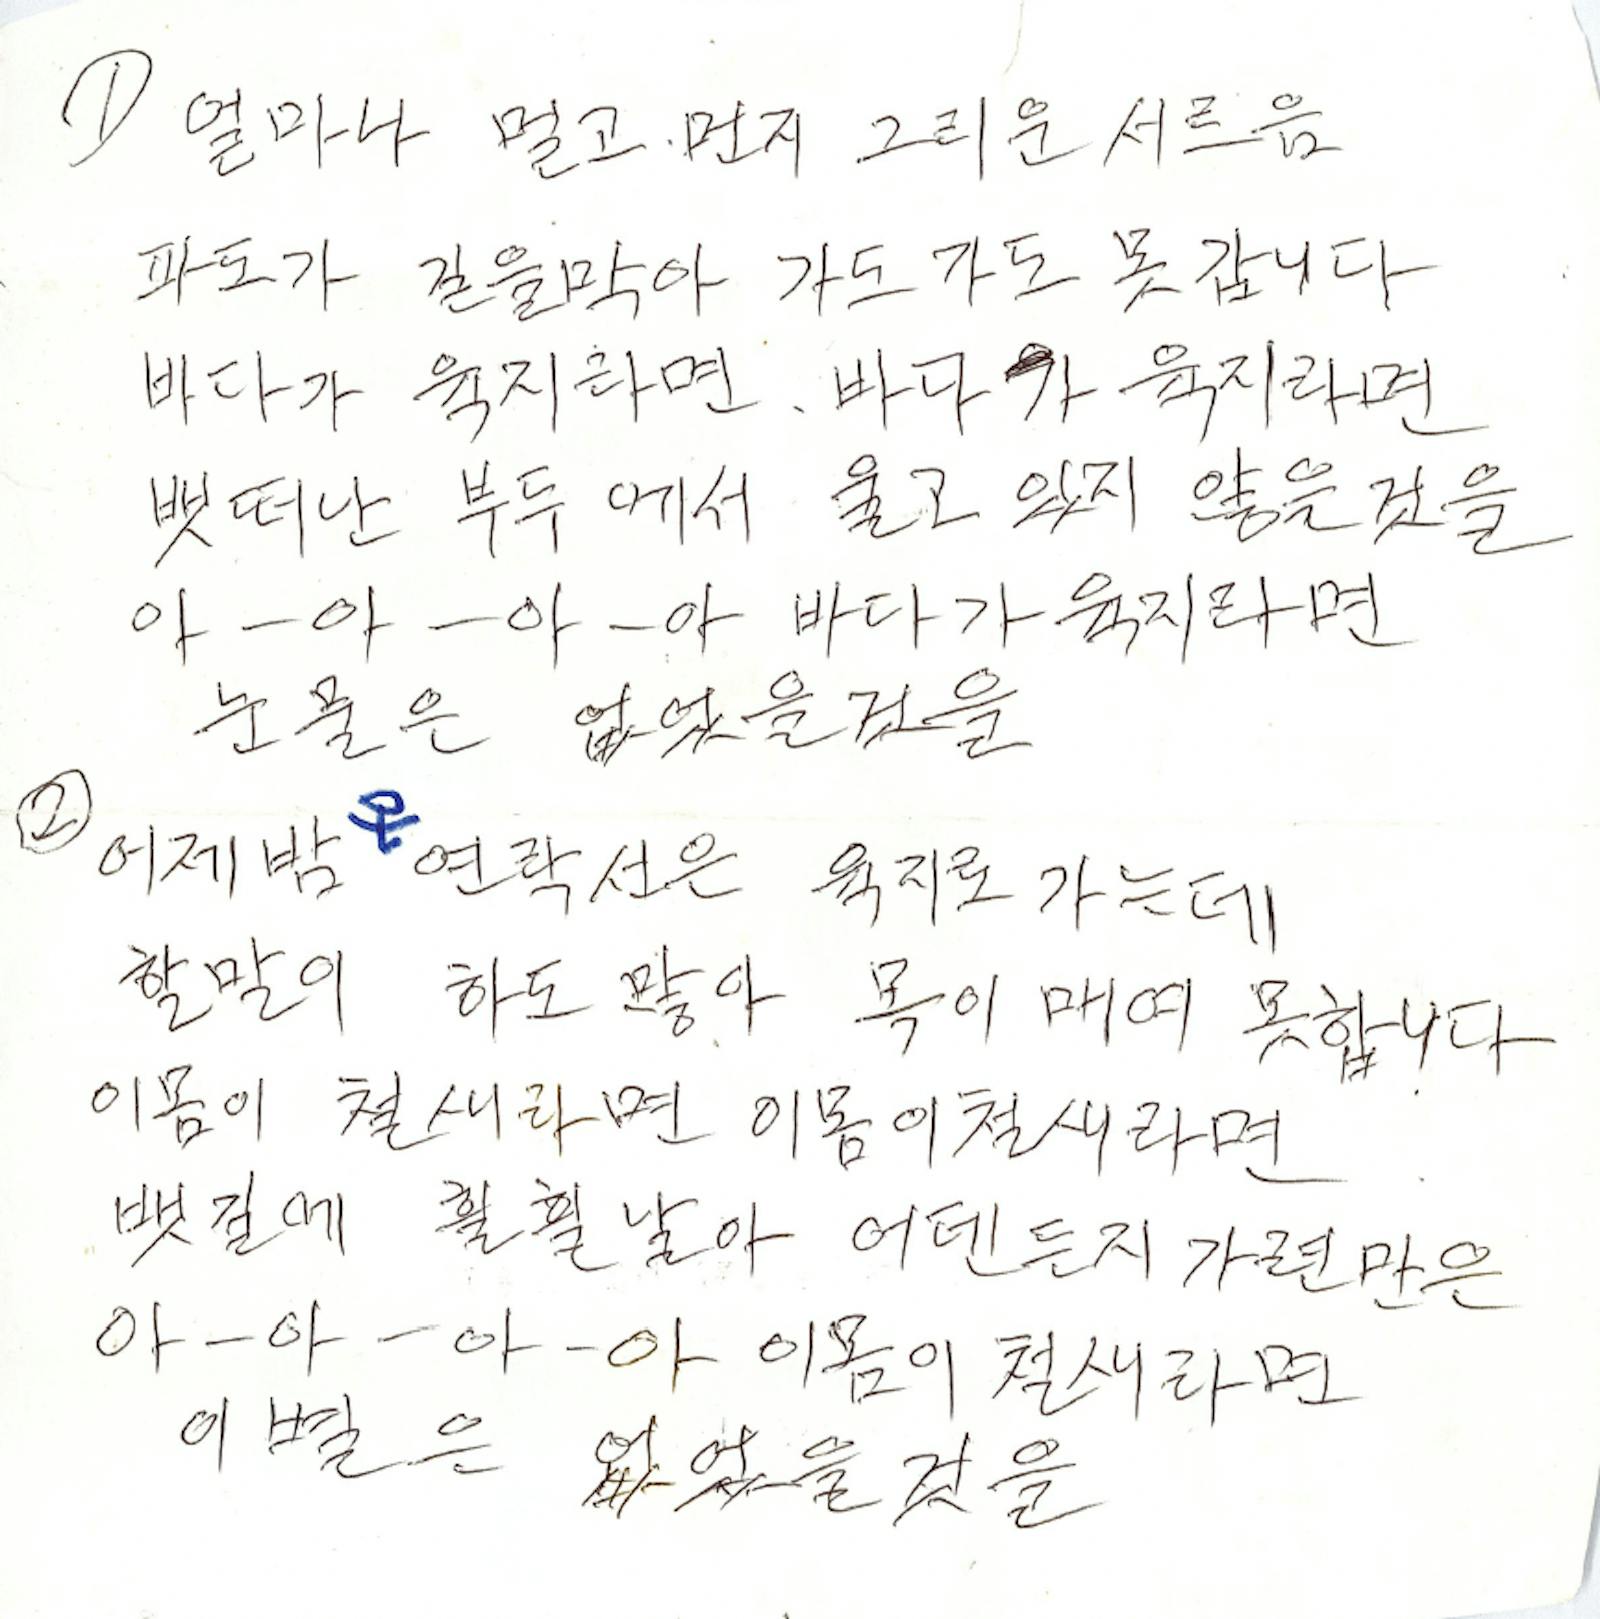 ① 얼마나 멀고.먼지 그리운 서르음
파도가 길을막아 가도 가도 못갑니다
바다가 육지라면. 바다가 육지라면
뱃떠난 부두에서 울고 있지 않을것을
아-아-아-아 바다가 육지라면
눈물은 없었을것을
② 어제밤 온 연락선은 육지로 가는데
할말이 하도 많아 목이 매여 못합니다
이몸이 철새라면 이몸이철새라면
뱃길에 훨훨날아 어덴든지 가련만은
아-아-아-아 이몸이 철새라면
이별은 없었을것을